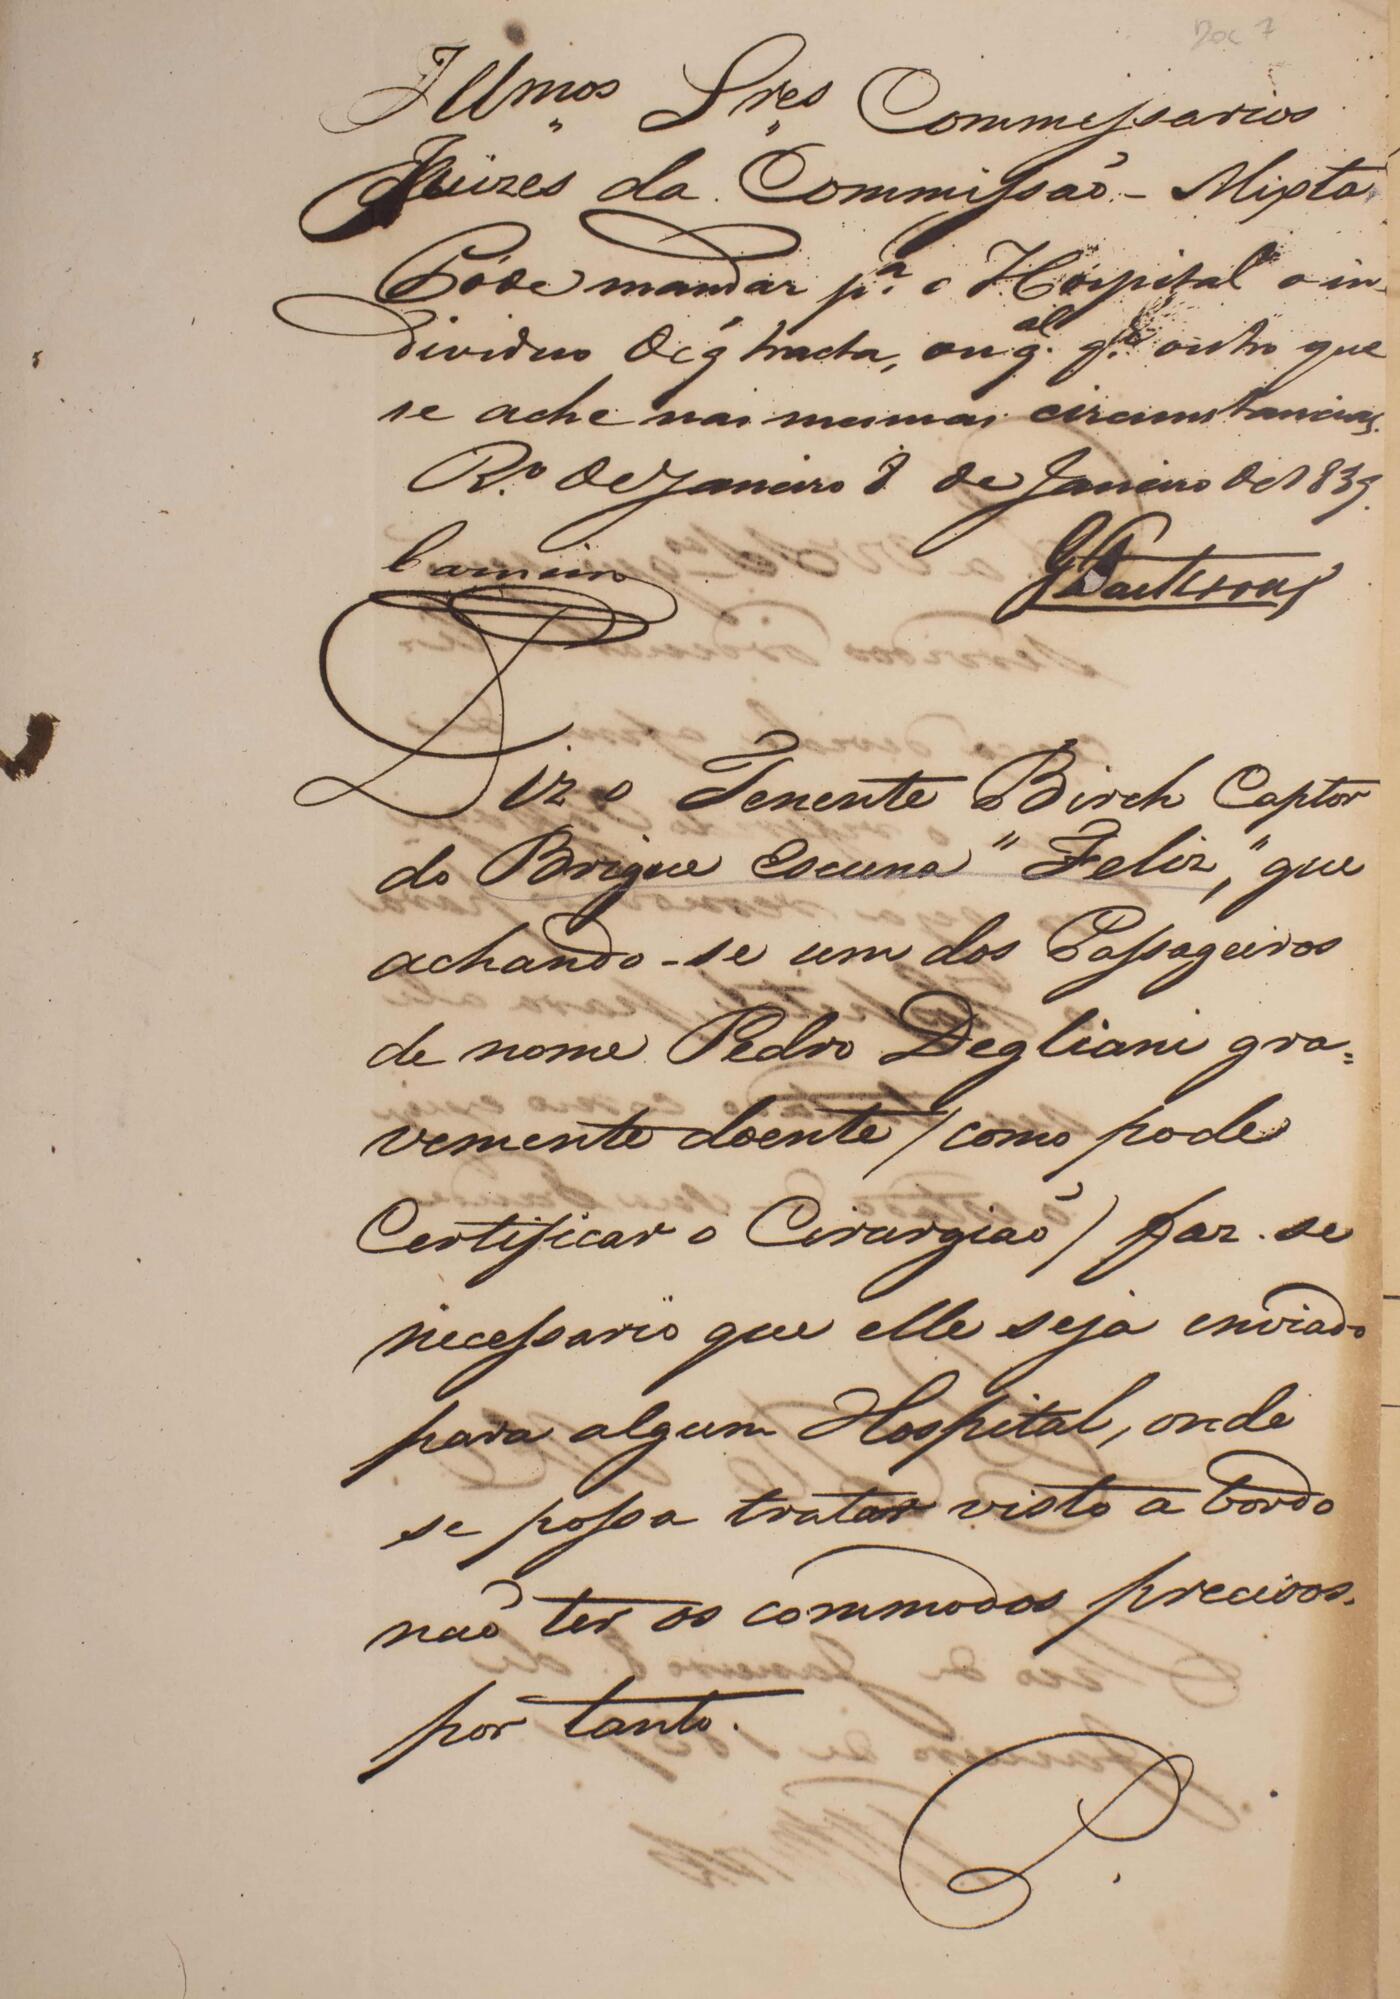 Doc 7
Illmos Sres Commessarios
Juizes da Commissaõ - Mixta
Póde mandar pa. o Hospital o in-
dividuo de q̃ tracta, ou qalqr. outro que
se ache nas mesmas circumstancias.
Ro. de Janeiro 8 de Janeiro de 1839.
Carneiro
Diz o Tenente Birch Captor
do Brigue Escuna "Feliz," que
achando-se um dos Passageiros
de nome Pedro Degliani gra=
vemente doente / como pode
Certificar o Cirurgiaõ / faz-se
necessario que elle seja enviado
para algum Hospital, onde
se possa tratar visto a bordo
naõ ter os commodos precisos.
por tanto.
P